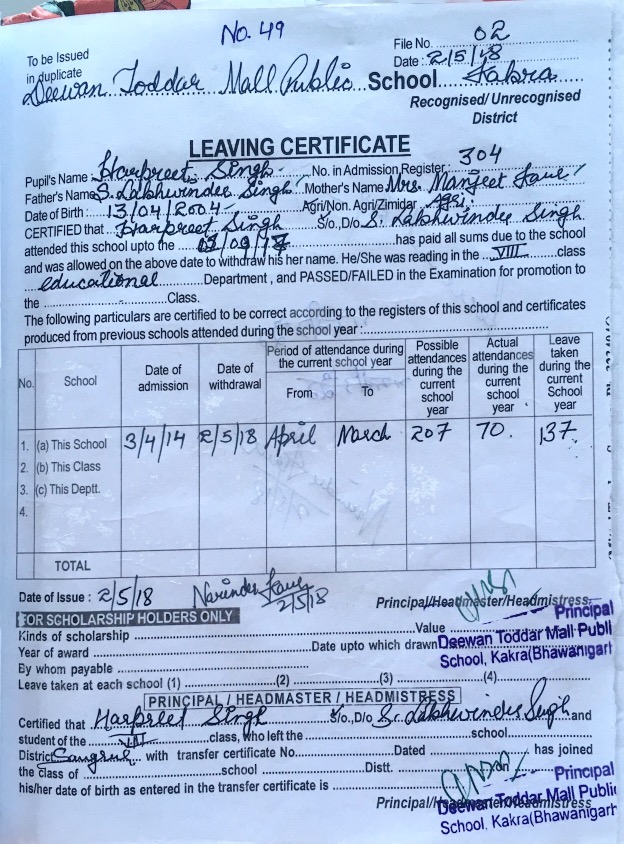 No. 49
To be Issued
in duplicate
File No. 02
Date : 2/5/18
Deewan Toddar Mall Public School Kakra
Recognised/ Unrecognised
District
LEAVING CERTIFICATE
Pupil's Name : Harpreet Singh No. in Admission Register : 304
Father's Name S. Lakhwinder Singh Mother's Name Mrs. Manjeet Kaur
Date of Birth : 13/04/2004 Agri/Non. Agri/Zimidar Agri.
CERTIFIED that Harpreet Singh S/o.,D/o S. Lakhwinder Singh
attended this school upto the has paid all sums due to the school
and was allowed on the above date to withdraw his her name. He/She was reading in the VIII class
educational Department , and PASSED/FAILED in the Examination for promotion to
the Class.
The following particulars are certified to be correct according to the registers of this school and certificates
produced from previous schools attended during the school year :
No. School Date of admission Date of withdrawal Period of attendance during the current school year From To Possible attendances during the current school year Actual attendances during the current school year Leave taken during the current School year
1. (a) This School 3/4/14 2/5/18 April March 207 70. 137
2. (b) This Class
3. (c) This Deptt.
4.
TOTAL
Date of Issue : 2/5/18 Narinder Kaur 2/5/18 Principal/Headmester/Headmistress
Principal
Deewan Toddar Mall Publi
School, Kakra(Bhawanigarh
FOR SCHOLARSHIP HOLDERS ONLY
Kinds of scholarship Value
Year of award Date upto which drawn
By whom payable
Leave taken at each school (1) (2) (3) (4)
PRINCIPAL / HEADMASTER / HEADMISTRESS
Certified that Harpreet Singh S/o.,D/o Sr. Lakhwinder Singh and
student of the class, who left the school
District Sangrur with transfer certificate No. Dated has joined
the class of school Distt. on
his/her date of birth as entered in the transfer certificate is
Principal
Principal/Headmaster/Headmistress
Deewan Toddar Mall Public
School, Kakra(Bhawanigarh